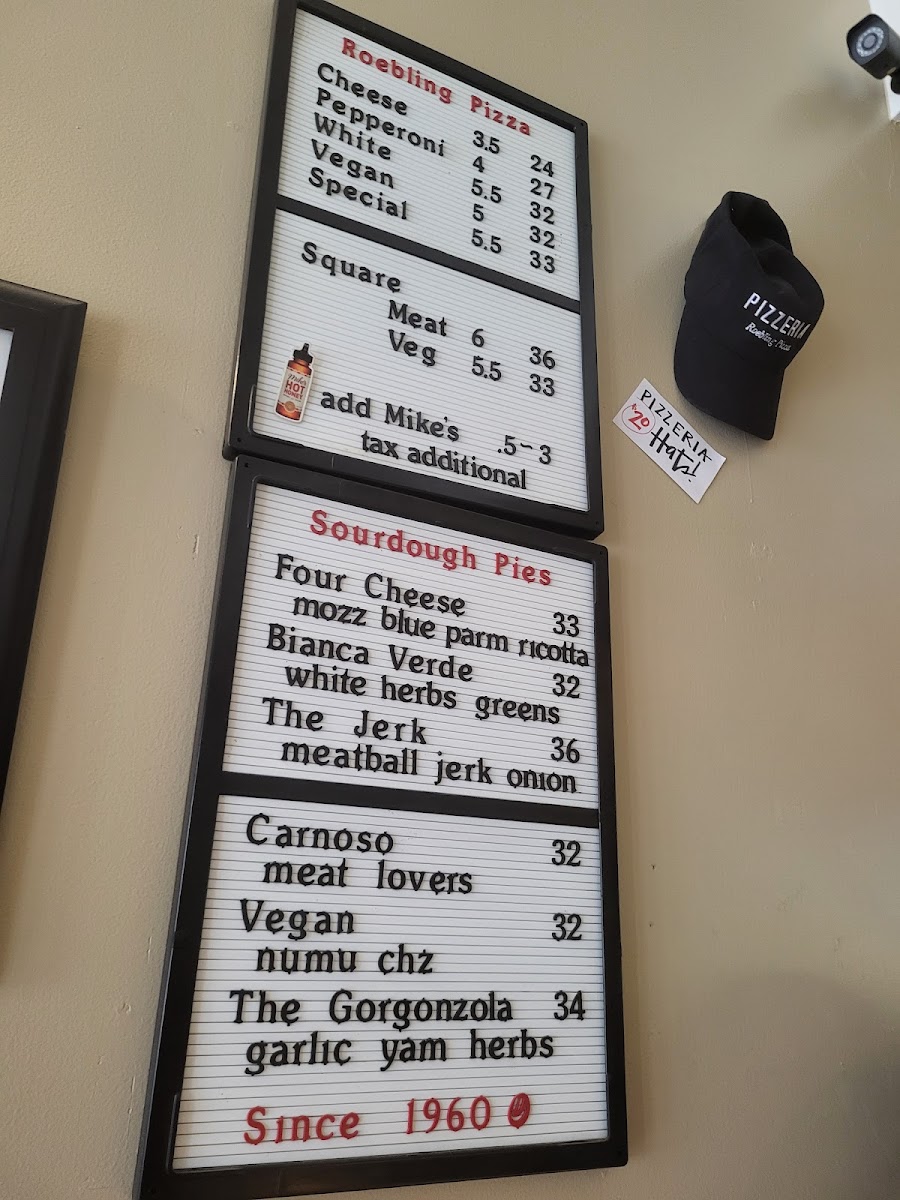 Roebling Pizza
Cheese 3.5 24
Pepperoni 4 27
White 5.5 32
Vegan 5 32
Special 5.5 33
Square
Meat 6 36
Veg 5.5 33
Mike's
HOT
HONEY
add Mike's .5~3
tax additional
Sourdough Pies
Four Cheese 33
mozz blue parm ricotta
Bianca Verde 32
white herbs greens
The Jerk 36
meatball jerk onion
Carnoso 32
meat lovers
Vegan 32
numu chz
The Gorgonzola 34
garlic yam herbs
Since 1960
PIZZERIA
Roebling Pizza
PIZZERIA
$20 Hats!